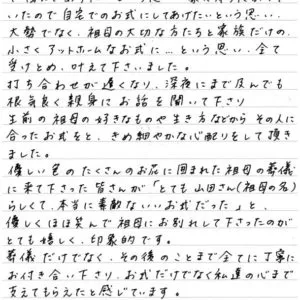 いたので自宅でのお式にしてあげたいという思い、
大勢でなく、祖母の大切な方たちと家族だけの、
小さくアットホームなお式に…という思い、全て
受けとめ、叶えて下さいました。
打ち合わせが遅くなり、深夜にまで及んでも
根気良く親身にお話を聞いて下さり
生前の祖母の好きなものや生き方などから その人に
合ったお式をと、きめ細やかな心配りをして頂き
ました。
優しい色のたくさんのお花に囲まれた祖母の葬儀
に来て下さった皆さんが「とても山田さん(祖母の名)
らしくて、本当に素敵ないいお式だった」と、
優しくほほ笑んで祖母にお別れして下さったのが
とても嬉しく、印象的です。
葬儀だけでなく、その後のことまで全てに丁寧に
お付き合い下さり、お式だけでなく私達の心まで
支えてもらえたと感じています。